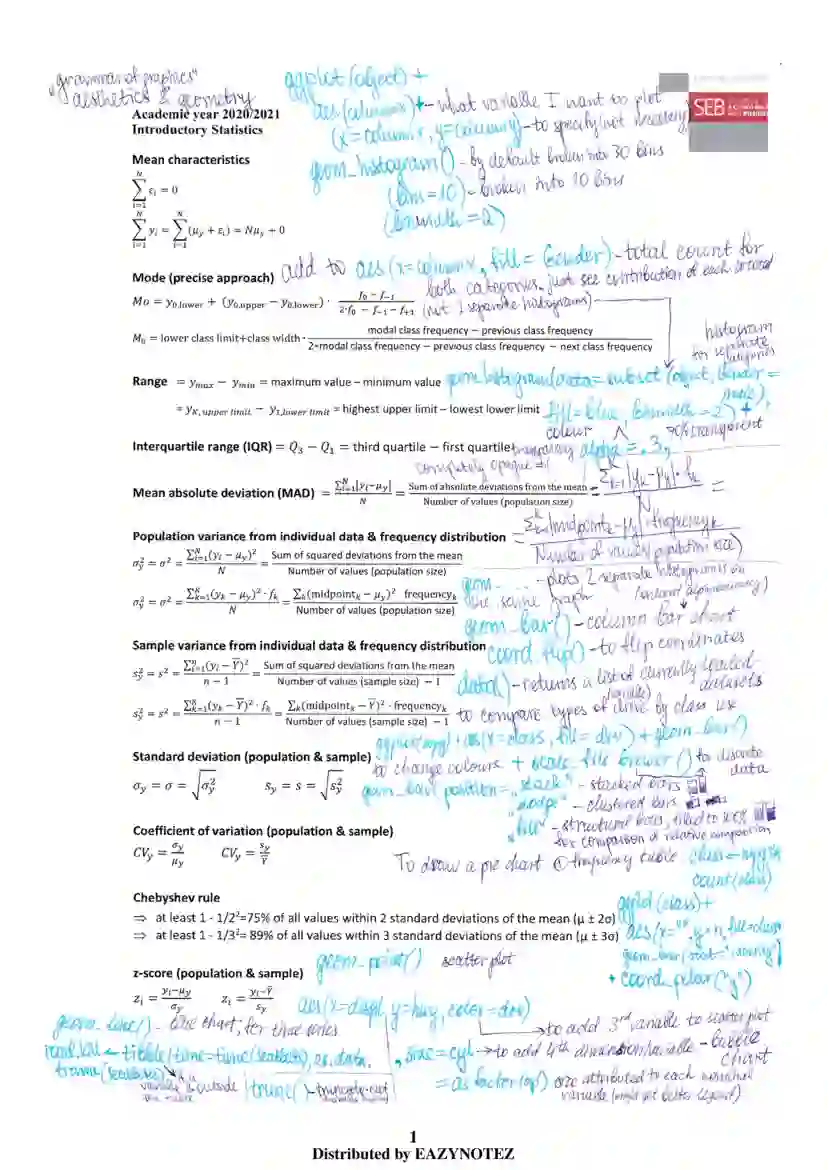 "grammar of graphics"
aesthetics & geometry
ggplot (object) +
aes (column x) + - what variable I want to plot
(x = column x, y = column y) - to specify (not necessary)
SEB
Academic year 2020/2021
Introductory Statistics
geom_histogram() - by default broken into 30 bins
(bins = 10) - broken into 10 bins
(binwidth = 2)
Mean characteristics
∑_{i=1}^{N} ε_i = 0
∑_{i=1}^{N} y_i = ∑_{i=1}^{N} (μ_y + ε_i) = Nμ_y + 0
add to aes (x = column x, fill = Gender) - total count for
both categories, just see contribution of each
(not 2 separate histograms)
Mode (precise approach)
Mo = y_{0,lower} + (y_{0,upper} − y_{0,lower}) · (f_0 − f_{−1}) / (2·f_0 − f_{−1} − f_{+1})
M_0 = lower class limit+class width · (modal class frequency − previous class frequency) / (2*modal class frequency − previous class frequency − next class frequency)
histogram
for separate
categories
Range = y_{max} − y_{min} = maximum value − minimum value
geom_histogram(data = subset (object, Gender =
male),
= y_{K,upper limit} − y_{1,lower limit} = highest upper limit − lowest lower limit
fill = blue, binwidth = 2) +
colour 70% transparent
Interquartile range (IQR) = Q_3 − Q_1 = third quartile − first quartile
transparency alpha = .3,
completely opaque = 1
Mean absolute deviation (MAD) = ∑_{i=1}^{N}|y_i−μ_y| / N = Sum of absolute deviations from the mean / Number of values (population size) = ∑_{k=1}^{K} |y_k − μ_y| · f_k / N =
= ∑_{k=1}^{K} |midpoint_k − μ_y| · frequency_k / Number of values (population size)
Population variance from individual data & frequency distribution
σ_y^2 = σ^2 = ∑_{i=1}^{N}(y_i − μ_y)^2 / N = Sum of squared deviations from the mean / Number of values (population size)
σ_y^2 = σ^2 = ∑_{k=1}^{K}(y_k − μ_y)^2 · f_k / N = ∑_k(midpoint_k − μ_y)^2 · frequency_k / Number of values (population size)
geom_ ... - plots 2 separate histograms in
the same graph
geom_bar() - column bar chart
coord_flip() - to flip coordinates
Sample variance from individual data & frequency distribution
s_y^2 = s^2 = ∑_{i=1}^{n}(y_i − Y̅)^2 / (n − 1) = Sum of squared deviations from the mean / (Number of values (sample size) − 1)
data() - returns a list of currently loaded
datasets
s_y^2 = s^2 = ∑_{k=1}^{K}(y_k − Y̅)^2 · f_k / (n − 1) = ∑_k(midpoint_k − Y̅)^2 · frequency_k / (Number of values (sample size) − 1)
(variable)
to compare types of drive by class use
ggplot(mpg) + aes(x = class, fill = drv) + geom_bar()
Standard deviation (population & sample)
to change colours + scale_fill_brewer() to discrete
data
σ_y = σ = √σ_y^2 s_y = s = √s_y^2
geom_bar( position = "stack" - stacked bars
"dodge" - clustered bars
"fill" - structural bars, filled to 100%
for comparison of relative composition
Coefficient of variation (population & sample)
CV_y = σ_y / μ_y CV_y = s_y / Y̅
To draw a pie chart ① frequency table class = mpg %>%
count(class)
Chebyshev rule
⇒ at least 1 - 1/2²=75% of all values within 2 standard deviations of the mean (μ ± 2σ)
⇒ at least 1 - 1/3²= 89% of all values within 3 standard deviations of the mean (μ ± 3σ)
ggplot (class) +
aes(x = "", y = n, fill = class
geom_bar (stat = "identity")
+ coord_polar("y")
z-score (population & sample)
geom_point() scatter plot
z_i = (y_i−μ_y) / σ_y z_i = (y_i−Y̅) / s_y
aes(x = displ, y = hwy, color = drv)
geom_line() - line chart; for time series
to add 3rd variable to scatter plot
tibble(time = time(seatbelts), as.data.
frame(seatbelts)
, size = cyl → to add 4th dimension/variable - bubble
chart
= as factor(cyl) size attributed to each
variable
trunc() - truncate
1
Distributed by EAZYNOTEZ